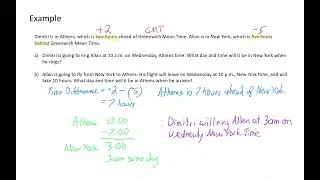 Example
+2 GMT -5
Dimitri is in Athens, which is two hours ahead of Greenwich Mean Time. Allan is in New York, which is five hours
behind Greenwich Mean Time.
a) Dimitri is going to ring Allan at 10 a.m. on Wednesday, Athens time. What day and time will it be in New York when
he rings?
b) Allan is going to fly from New York to Athens. His flight will leave on Wednesday at 10 p.m., New York time, and will
take 10 hours. What day and time will it be in Athens when he arrives?
Time Difference = +2 - (-5) Athens is 7 hours ahead of New York
= 7 hours
Athens 10.00
- 7.00
New York 3.00
3am same day
∴ Dimitri will ring Allen at 3am on
Wednesday New York Time